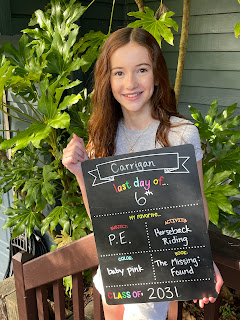 Carrigan
last day of...
6th
my Favorite...
SUBJECT: ACTIVITIES:
P.E. Horseback
Riding
COLOR: BOOK:
baby pink The Missing:
Found
CLASS OF: 2031